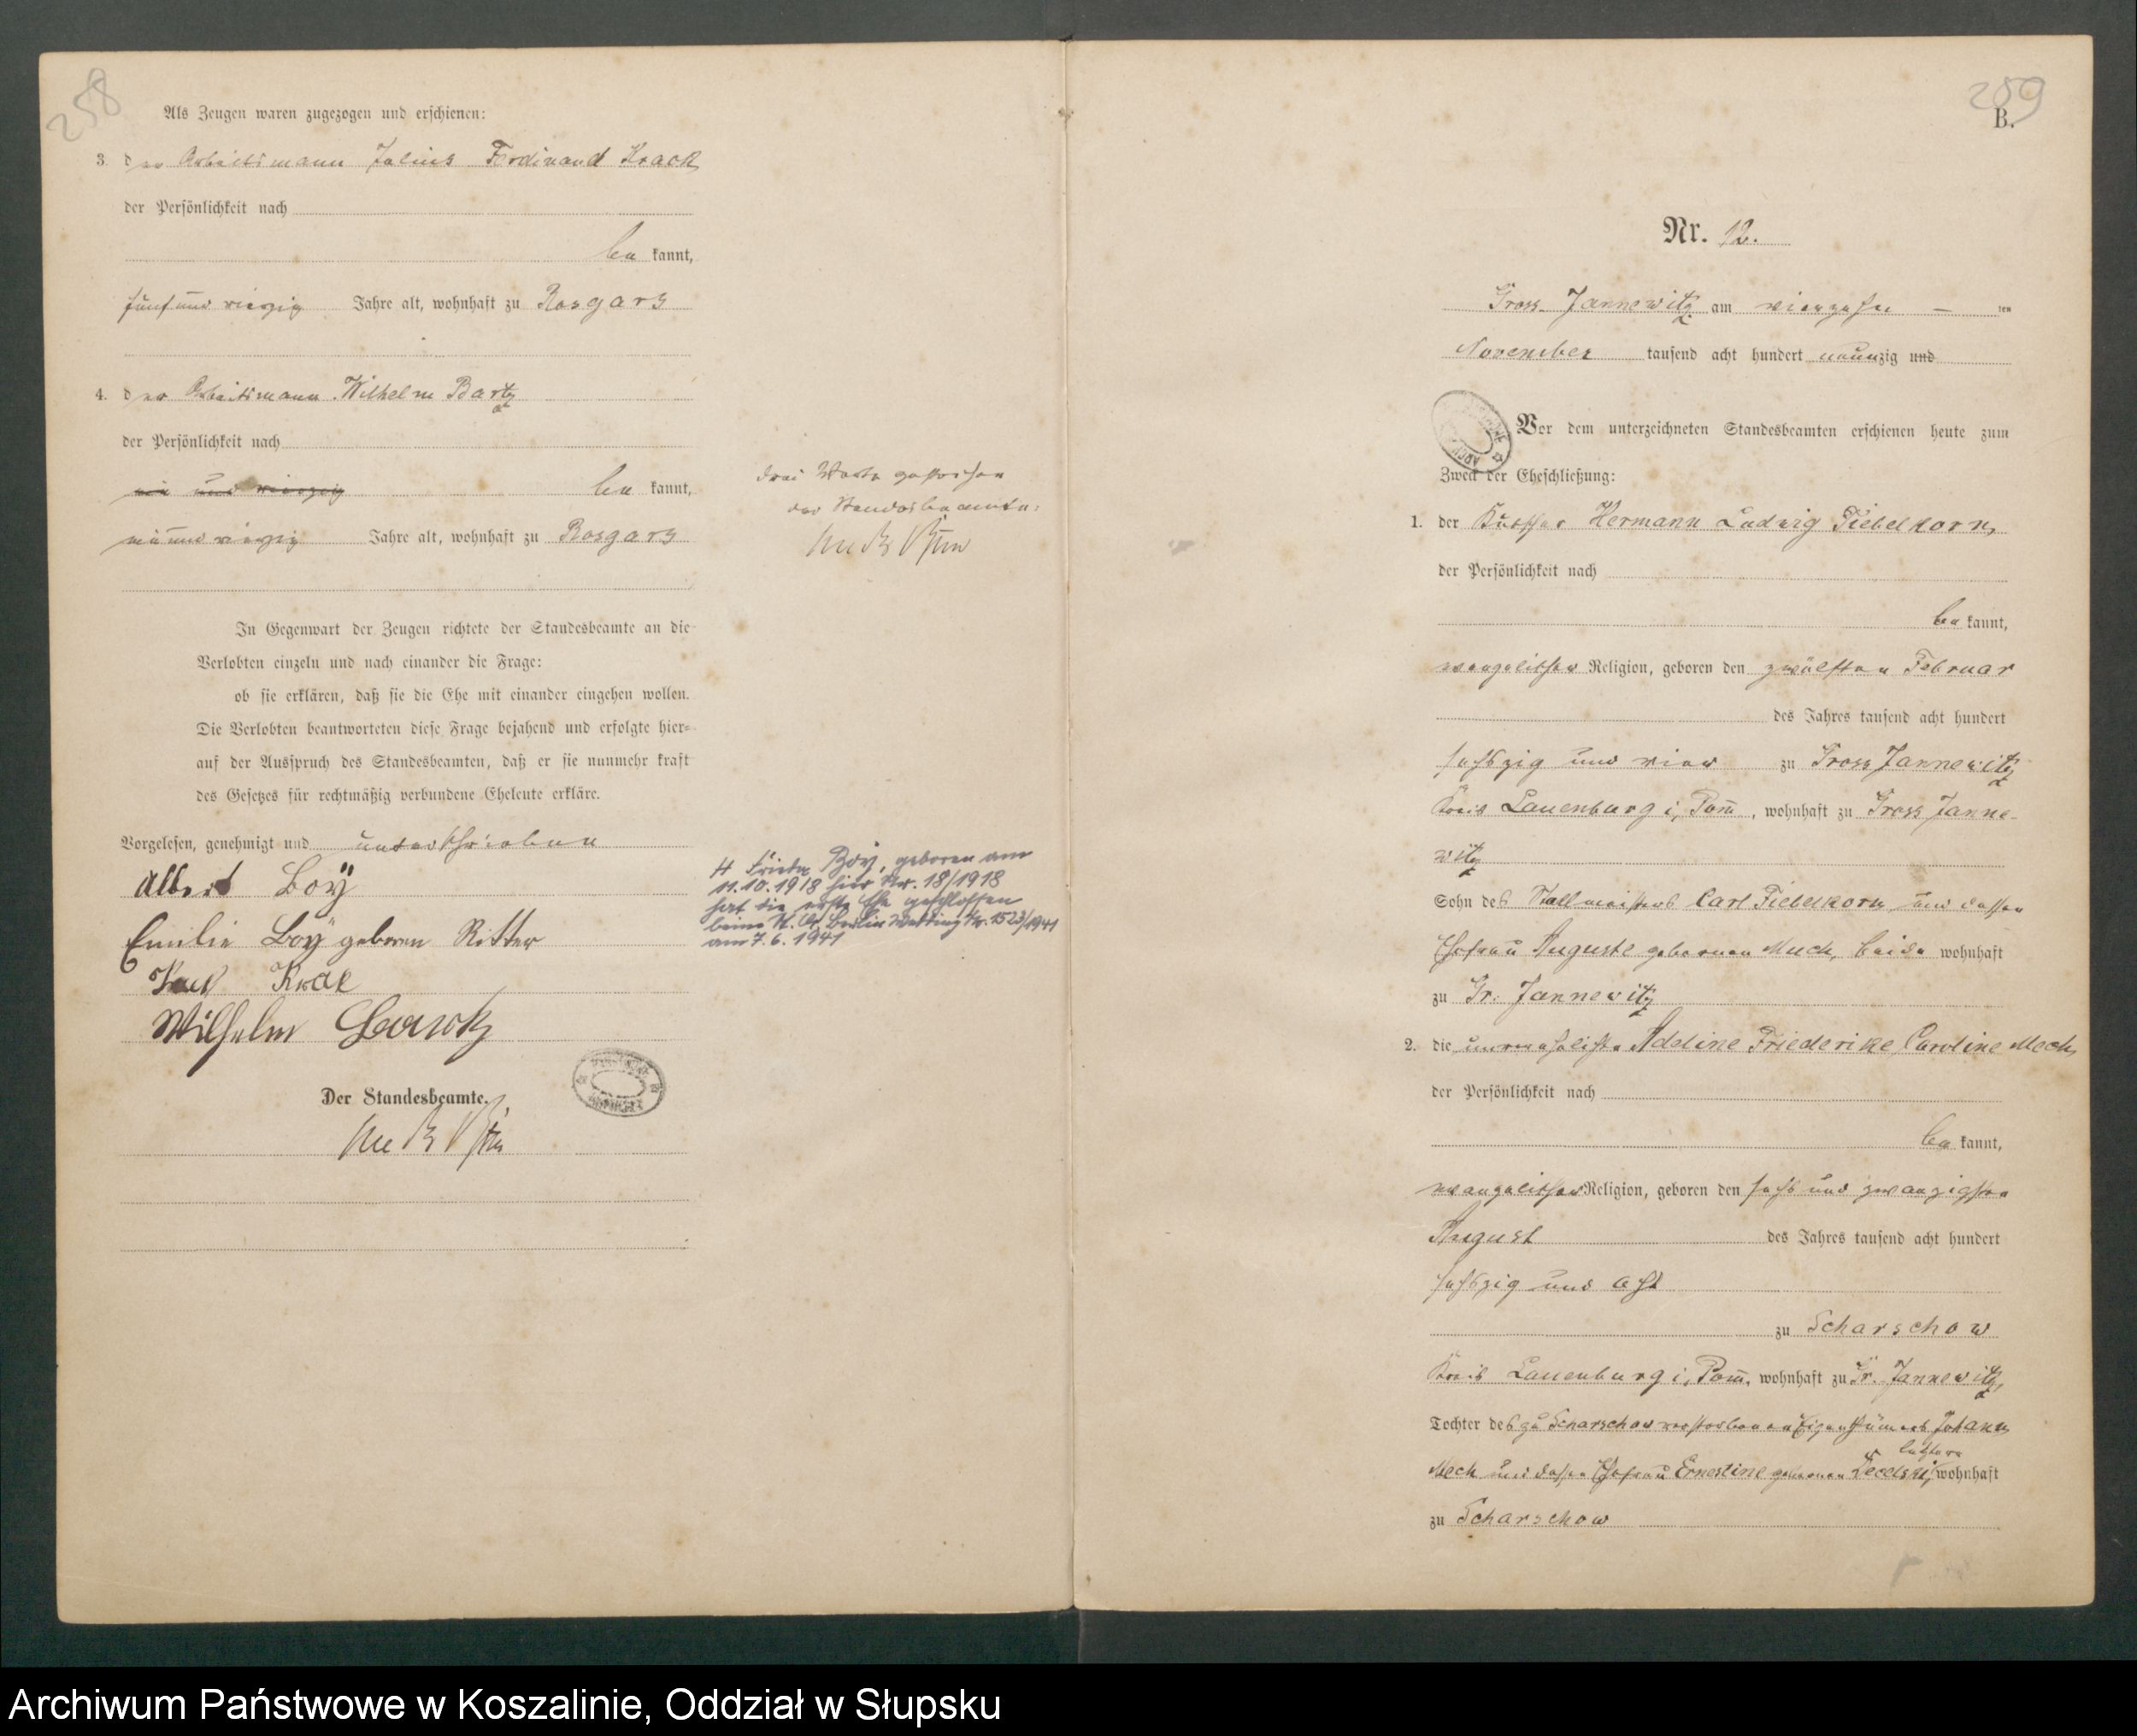 258
Als Zeugen waren zugezogen und erschienen:
3. der Arbeitsmann Julius Ferdinand Kraok
der Persönlichkeit nach
be kannt,
fünf und vierzig Jahre alt, wohnhaft zu Rosgars
4. der Arbeitsmann Wilhelm Bartz
der Persönlichkeit nach
und vierzig be kannt,
und vierzig Jahre alt, wohnhaft zu Rosgars
drei Worte gestrichen
der Standesbeamte:
In Gegenwart der Zeugen richtete der Standesbeamte an die
Verlobten einzeln und nach einander die Frage:
ob sie erklären, daß sie die Ehe mit einander eingehen wollen.
Die Verlobten beantworteten diese Frage bejahend und erfolgte hier=
auf der Ausspruch des Standesbeamten, daß er sie nunmehr kraft
des Gesetzes für rechtmäßig verbundene Eheleute erkläre.
Vorgelesen, genehmigt und unterschrieben
Albert Boÿ
Emilie Boÿ geboren Ritter
Krak
Wilhelm
Der Standesbeamte.
H Frieda Boy, geboren am
11.10.1918 hier Nr. 18/1918
hat die erste Ehe geschlossen
beim St. A. Berlin Wedding Nr. 1523/1941
am 7.6.1941
259
B.
Nr. 12.
Gross Jannewitz am vierzehn – ten
November tausend acht hundert neunzig und
Vor dem unterzeichneten Standesbeamten erschienen heute zum
Zweck der Eheschließung:
1. der Kutscher Hermann Ludwig Fiebelkorn,
der Persönlichkeit nach
be kannt,
evangelischer Religion, geboren den zwölften Februar
des Jahres tausend acht hundert
sechszig und vier zu Gross Jannewitz
Kreis Lauenburg i, Pom̅, wohnhaft zu Gross Janne-
witz
Sohn des Stallmeisters Carl Fiebelkorn und dessen
Ehefrau Auguste geborenen Much, beide wohnhaft
zu Gr. Jannewitz
2. die unverehelichte Adeline Friederike Caroline Mech,
der Persönlichkeit nach
be kannt,
evangelischer Religion, geboren den sechs und zwanzigsten
August des Jahres tausend acht hundert
sechszig und acht
zu Scharschow
Kreis Lauenburg i, Pom̅, wohnhaft zu Gr. Jannewitz,
Tochter des zu Scharschow verstorbenen Eigenthümers Johann
letztere
Mech und dessen Ehefrau Ernestine geborenen wohnhaft
zu Scharschow
Archiwum Państwowe w Koszalinie, Oddział w Słupsku